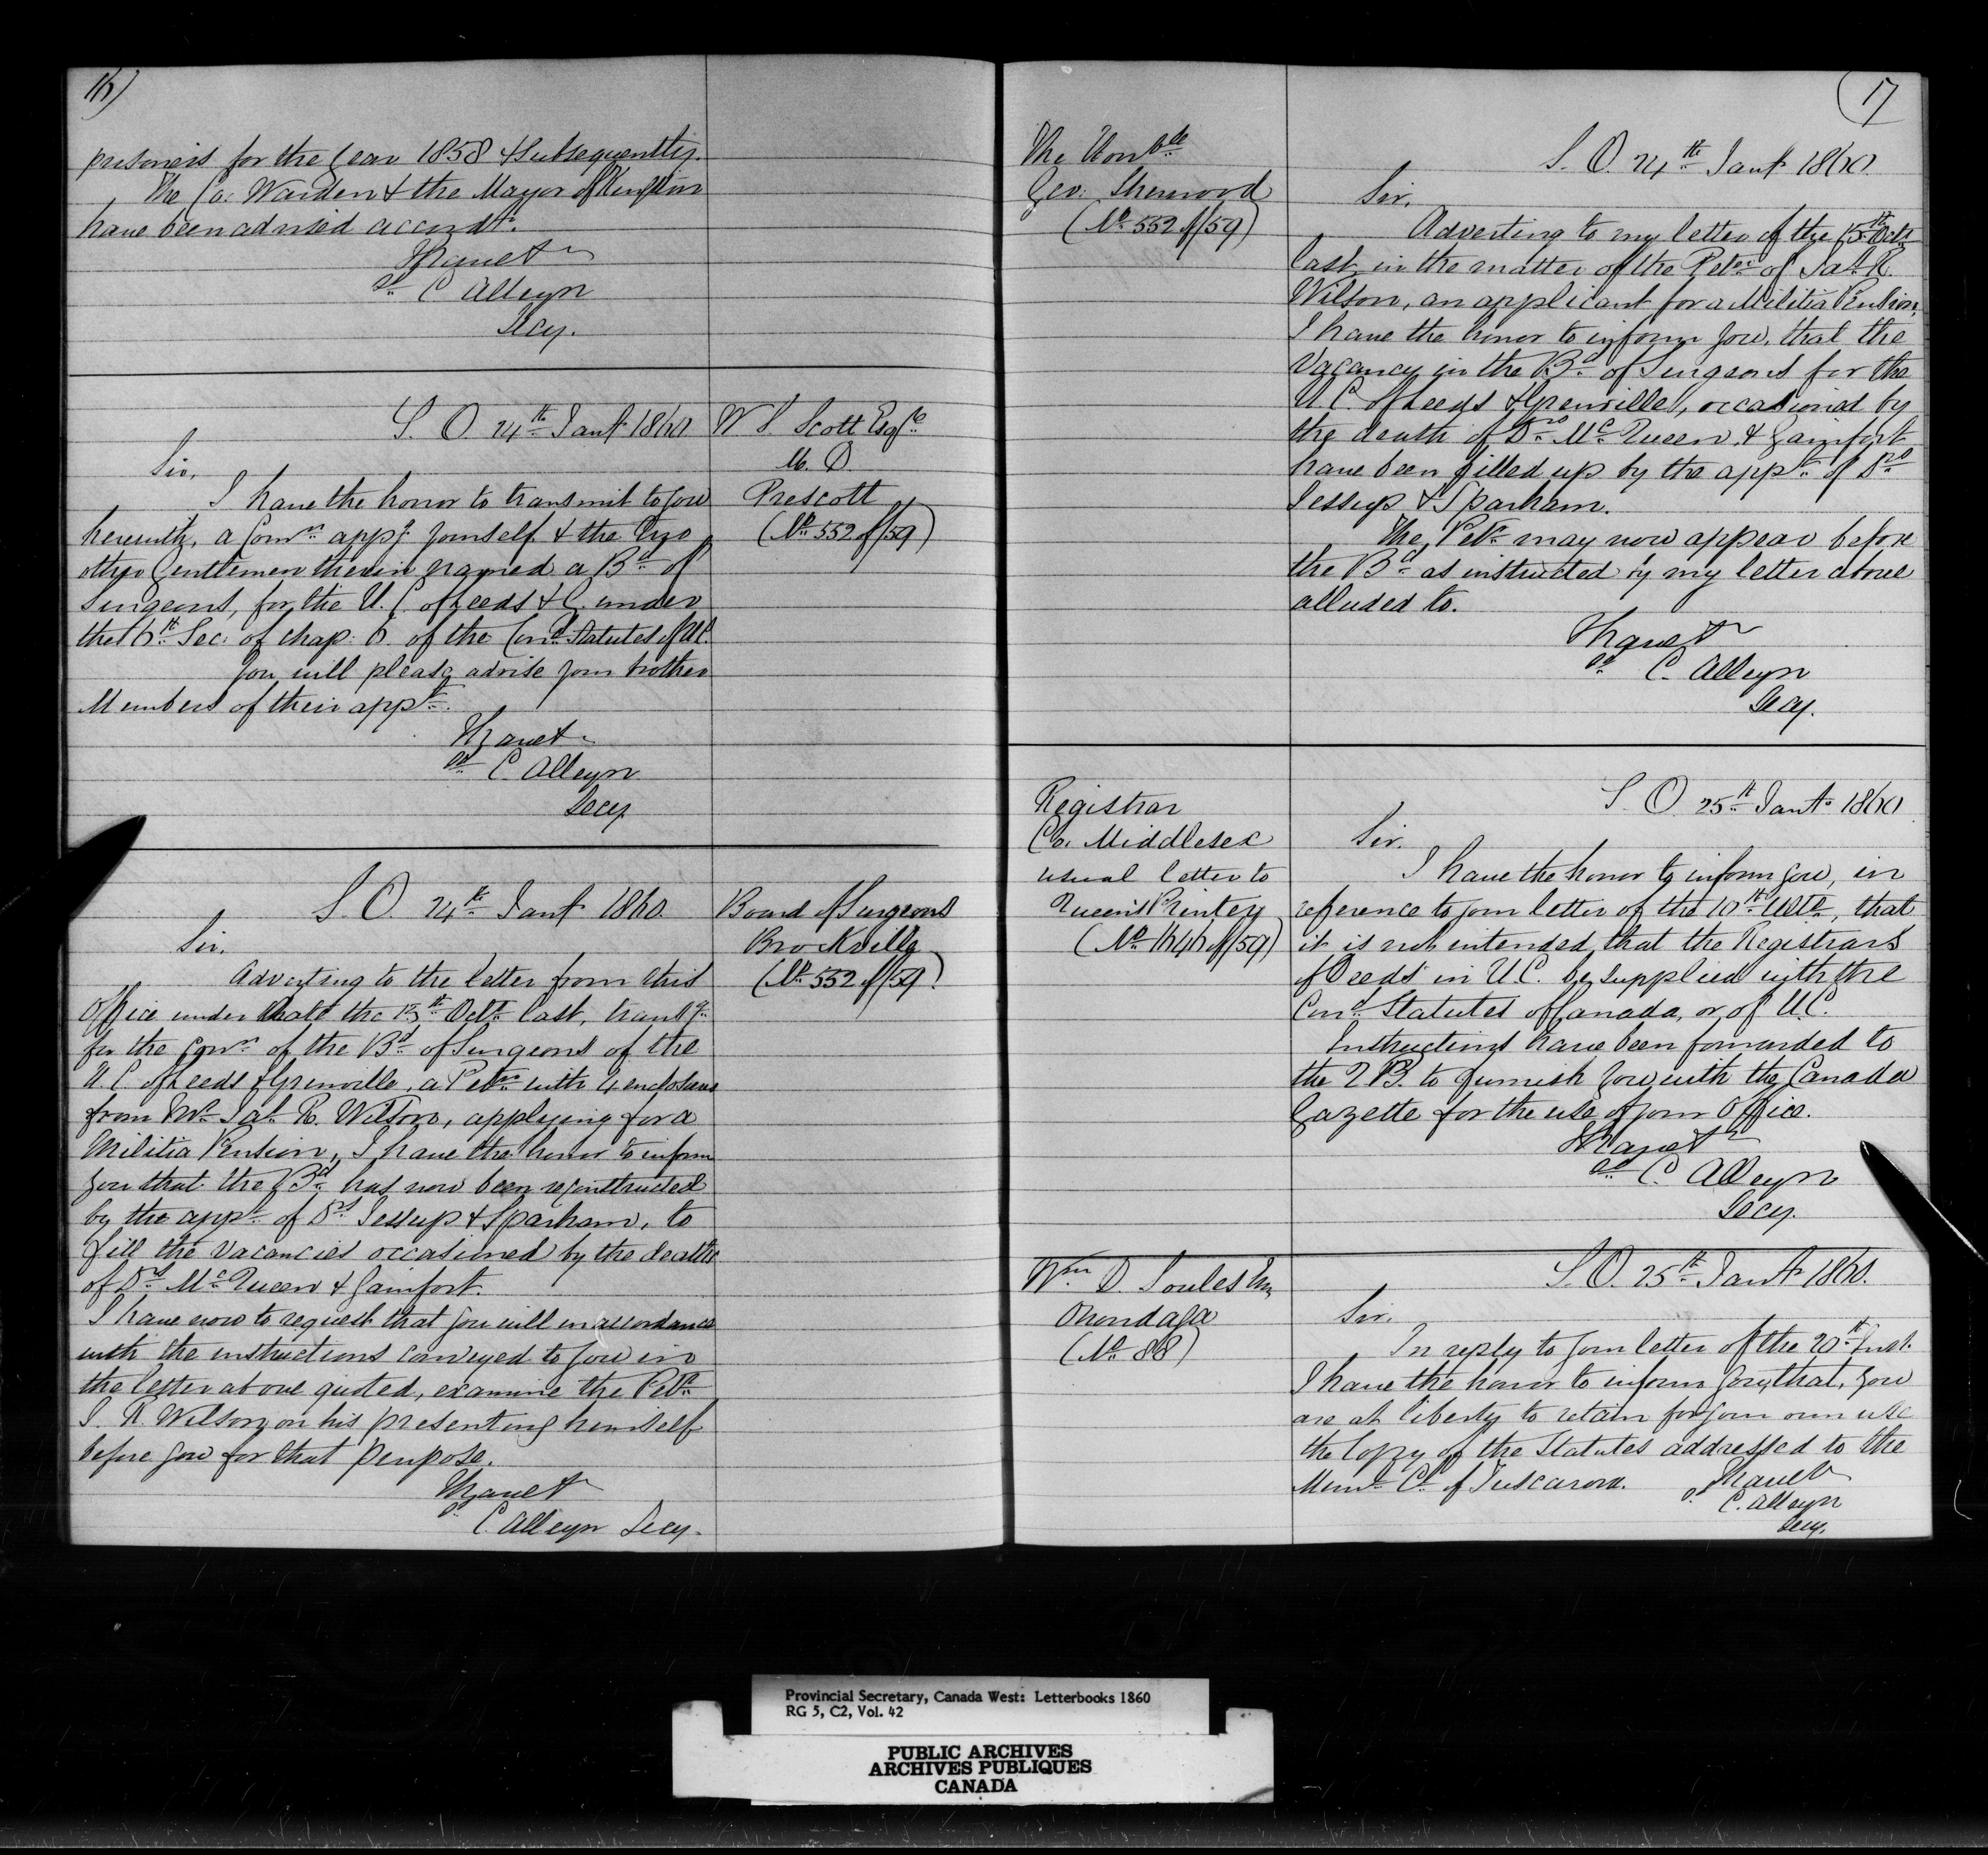 16)
prisoners for the Year 1858 & Subsequently.
The Co: Warden & the Mayor of Kingston
have been advised accordy.
I have &c
sd. C Alleyn
Secy.
S. O. 24th Jany 1860
W S. Scott Esqre
M. D
Prescott
(No 552 of/59)
Sir,
I have the honor to transmit to you
herewith, a Comn appg yourself & the two
other Gentlemen therein named a Bd of
Surgeons, for the U. C. of Leeds & G. under
the 6th Sec: of chap: 6. of the Cond Statutes of U.C.
You will please advise your brother
Members of their appt.
I have &c
sd. C. Alleyn
Secy
S. O. 24th Jany 1860.
Board of Surgeons
Brockville
(No 552 of/59)
Sir.
Adverting to the letter from this
Office under date the 15th Octr last, transg
for the Conn of the Bd of Surgeons of the
U. C of Leeds & Grenville, a Petn with 4 enclosures
from Mr Jas R. Wilson, applying for a
Militia Pension, I have the honor to inform
you that the Bd has now been reconstructed
by the appt of Drs Jessup & Sparham, to
fill the vacancies occasioned by the deaths
of Drs McQueen & Gainfort.
I have now to request that you will in accordance
with the instructions conveyed to you in
the letter above quoted, examine the Petr
J. R. Wilson, on his presenting himself
before you for that purpose.
I have &c
sd.
C. Alleyn Secy.
17
The Honble
Geo: Sherwood
(No 552 of/59)
S. O. 24th Jany 1860.
Sir,
Adverting to my letter of the 15th Octr
last, in the matter of the Petn of Jas R.
Wilson, an applicant for a Militia Pension,
I have the honor to inform you, that the
Vacancy in the Bd of Surgeons for the
U. C. of Leeds & Grenville, occasioned by
the death of Drs McQueen, & Gainfort
have been filled up by the appt of Drs
Jessup & Sparham.
The Petr may now appear before
the Bd as instructed by my letter above
alluded to.
I have &c
sd. C. Alleyn
Secy.
Registrar
Co. Middlesex
usual letter to
Queen's Printer
(No 1646 of/59)
S. O. 25th Jany 1860
Sir.
I have the honor to inform you, in
reference to your letter of the 10th Ulto, that
it is not intended, that the Registrars
of Deeds in U.C. be supplied with the
Cond Statutes of Canada, or of U.C.
Instructions have been forwarded to
the Q P. to furnish you with the Canada
Gazette for the use of your Office.
I have &c
sd. C. Alleyn
Secy.
Wm D. Soules Esq
Onondaga
(No 88)
S. O. 25th Jany 1860.
Sir.
In reply to your letter of the 20th Inst.
I have the honor to inform you, that, you
are at liberty to retain for your own use
the Copy of the Statutes addressed to the
Munl Cl of Tuscarora.
I have &c
sd. C. Alleyn
Secy.
Provincial Secretary, Canada West: Letterbooks 1860
RG 5, C2, Vol. 42
PUBLIC ARCHIVES
ARCHIVES PUBLIQUES
CANADA